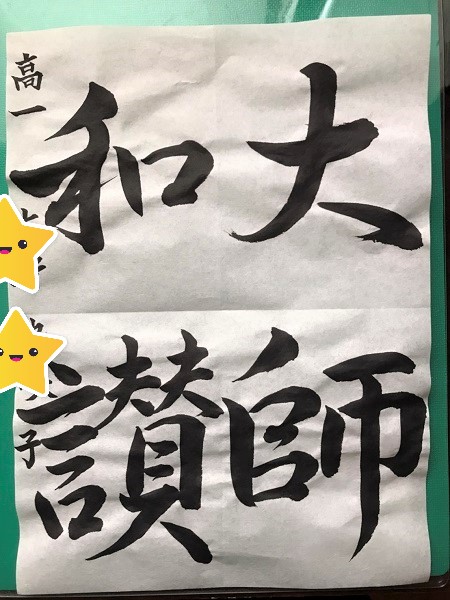 大師
和讃
高一
子